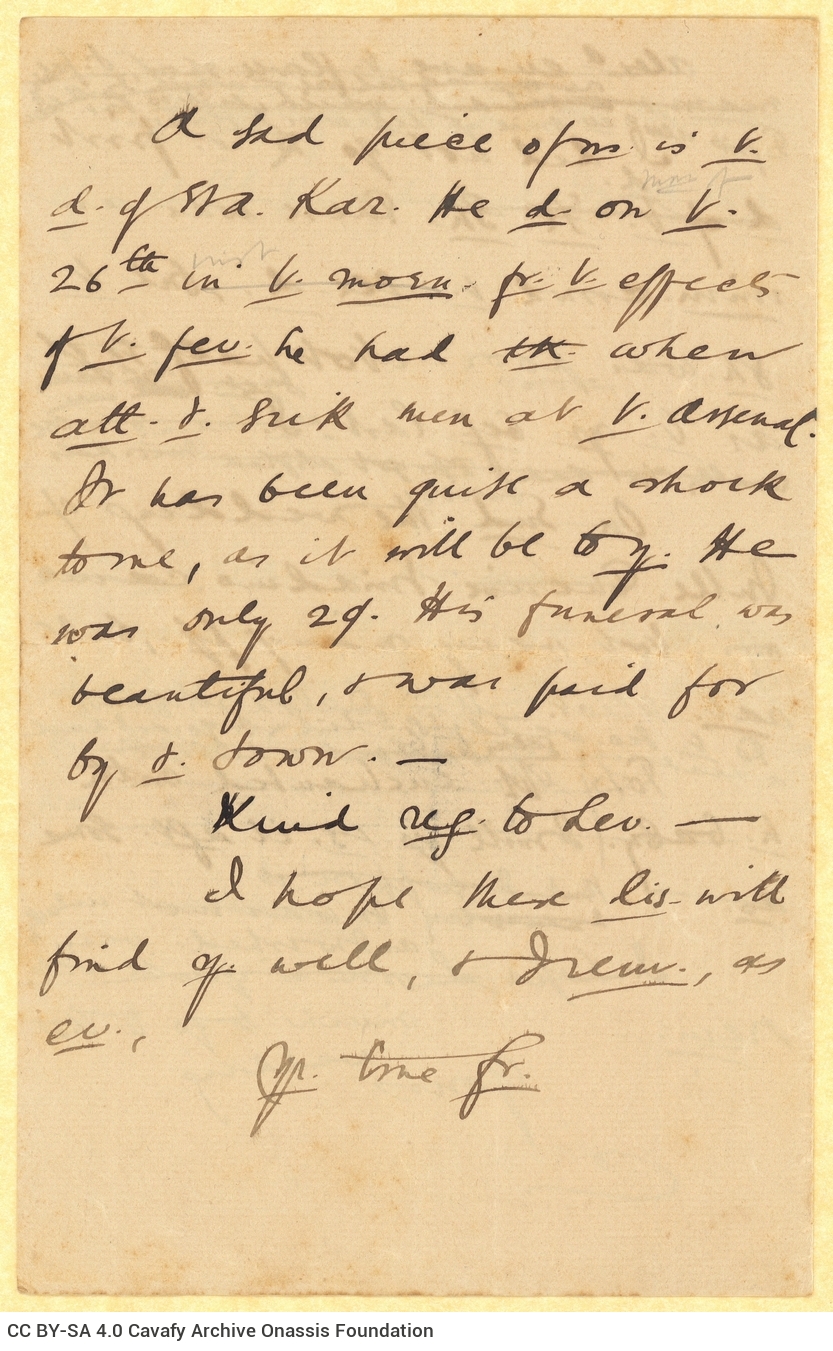 A sad piece of ns. is t.
d. of Sta. Kar. He d. on t.
26th in t. morn. fr. t. effects
of t. fev. he had th. when
att. t. sick men at t. Arsenal.
It has been quite a shock
to me, as it will be to y. He
was only 29. His funeral was
beautiful, & was paid for
by t. town. —
Kind reg. to Leo. —
I hope these lis. will
find y. well, & I rem., as
ev.,
Yr. true fr.
CC BY-SA 4.0 Cavafy Archive Onassis Foundation